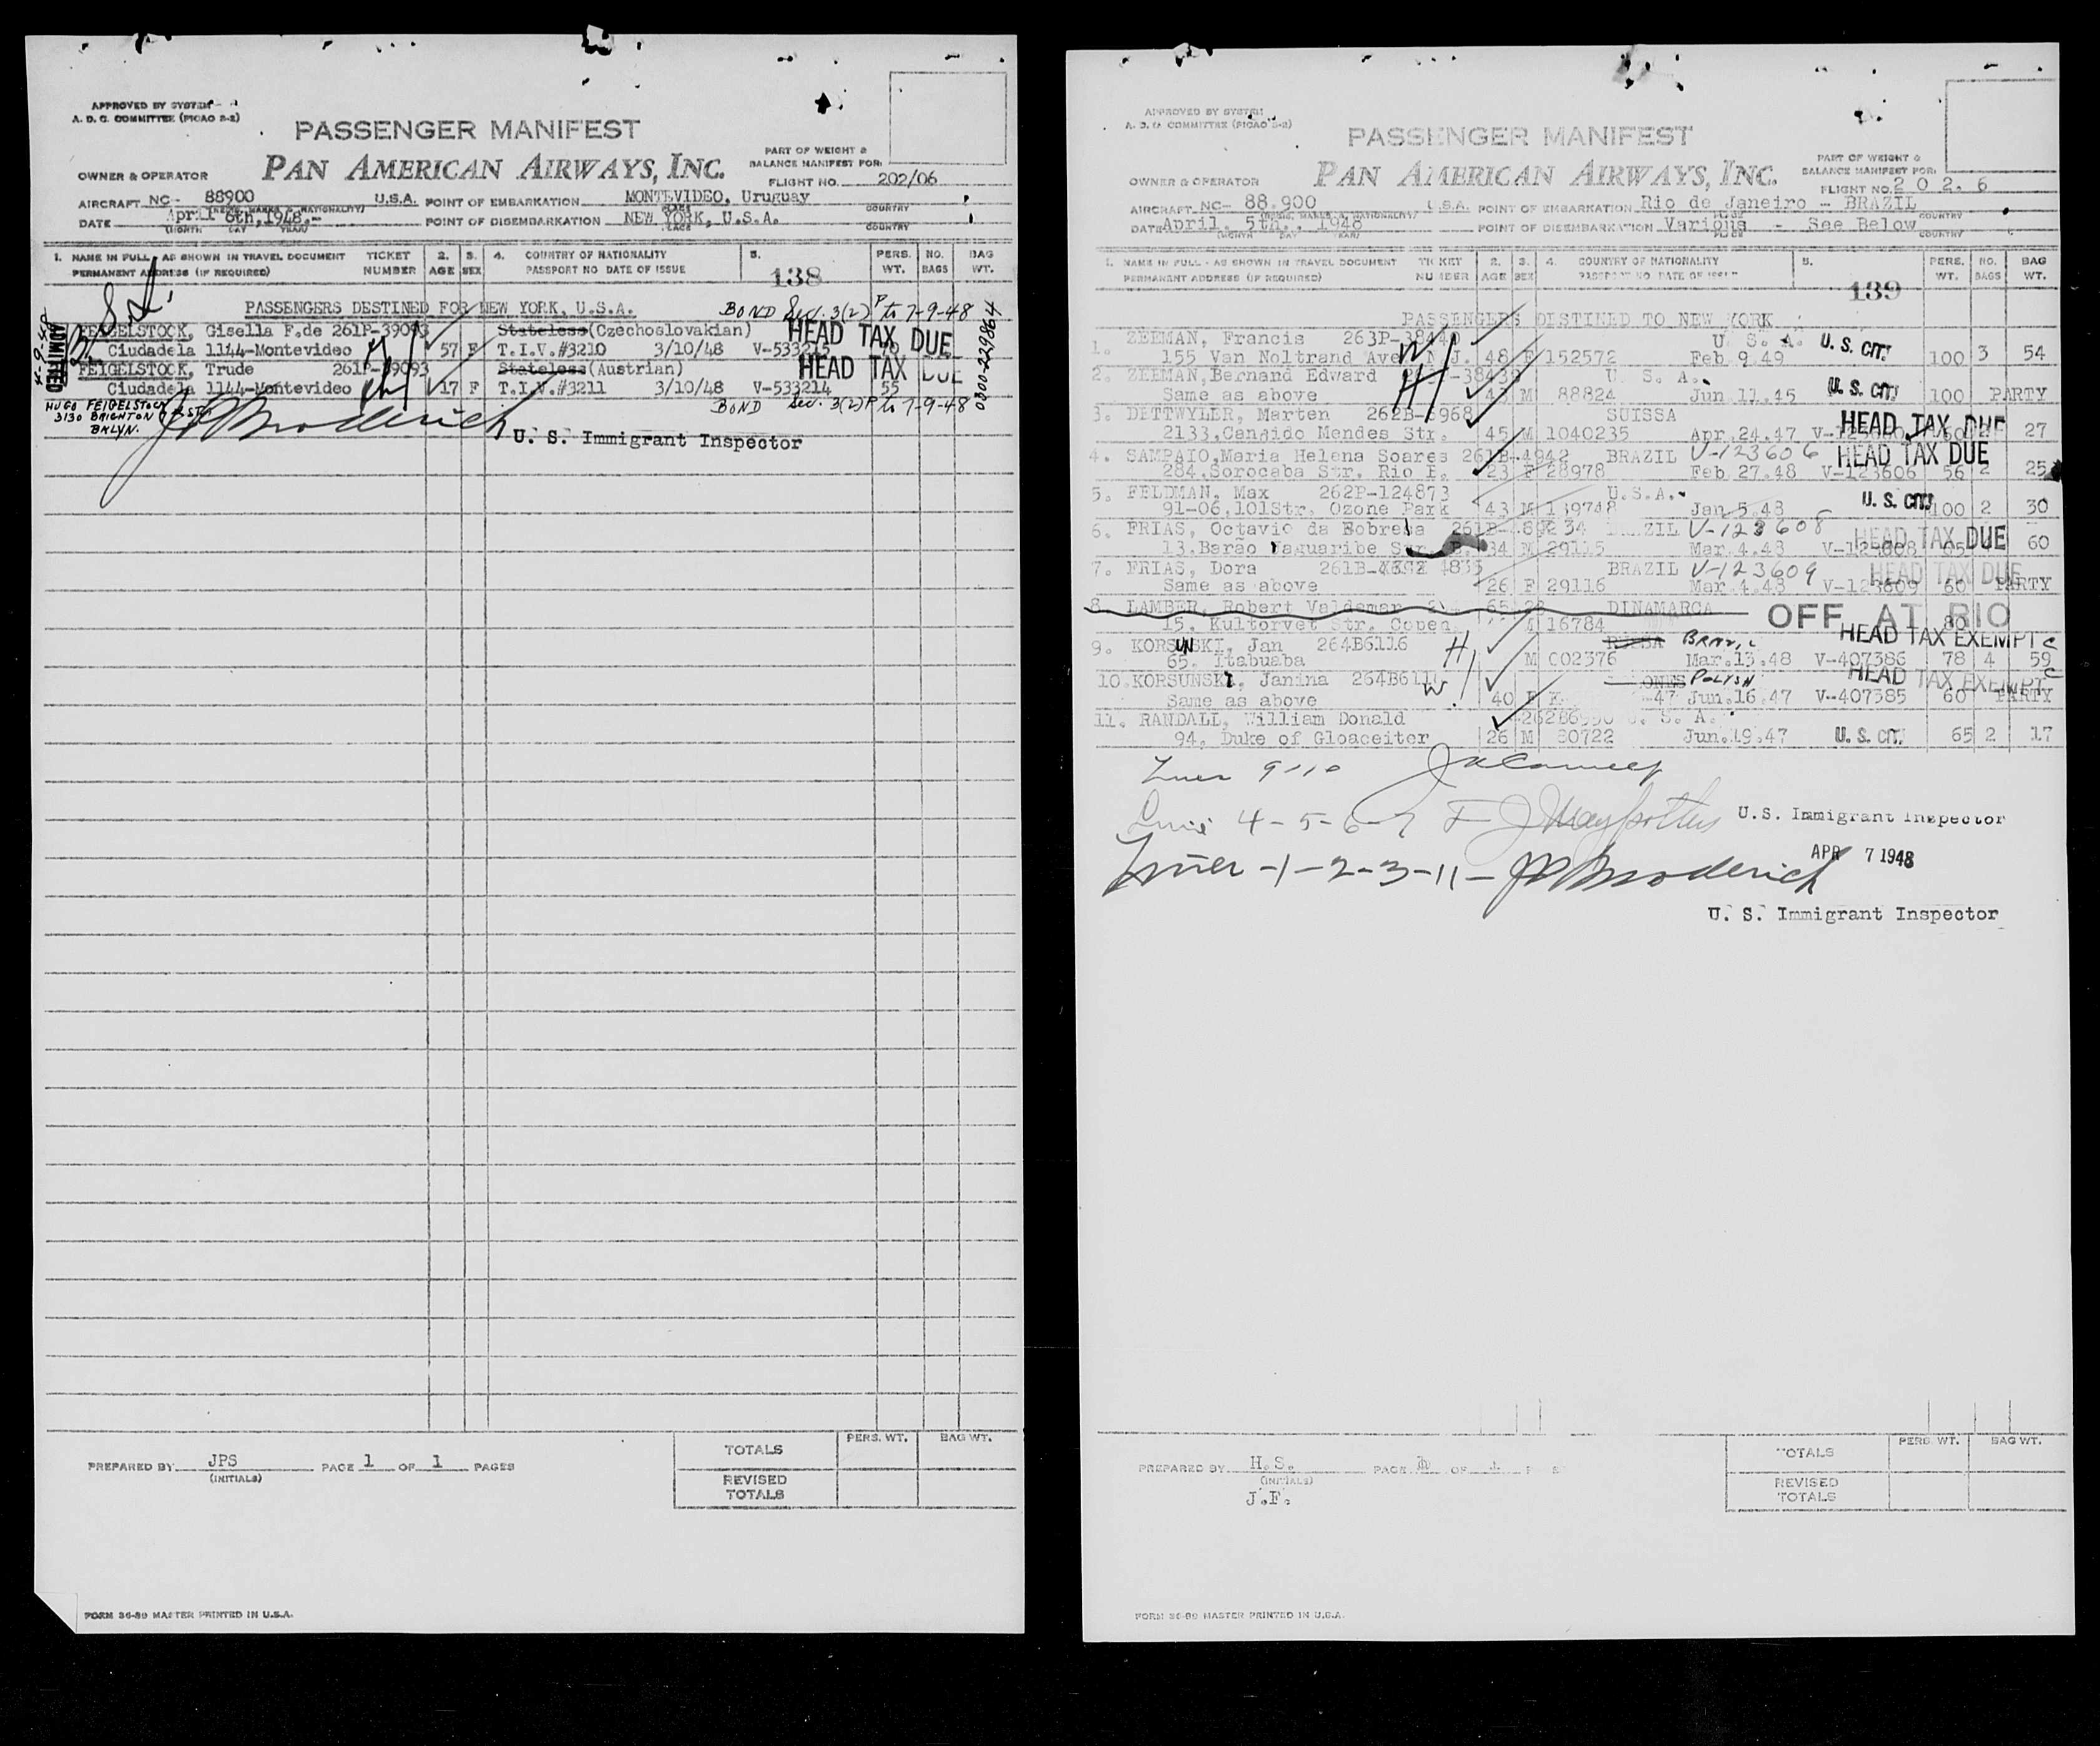 APPROVED BY SYSTEM
A. D. C. COMMITTEE (PICAO 2-2)
PASSENGER MANIFEST
PAN AMERICAN AIRWAYS, INC.
PART OF WEIGHT &
BALANCE MANIFEST FOR:
FLIGHT NO. 202/06
OWNER & OPERATOR
AIRCRAFT NC- 88900 U.S.A. POINT OF EMBARKATION MONTEVIDEO, Uruguay
(REG. MARKS & NATIONALITY) PLACE COUNTRY
DATE April 6th, 1948.- POINT OF DISEMBARKATION NEW YORK, U.S.A.
(MONTH DAY YEAR) PLACE COUNTRY
1. NAME IN FULL - AS SHOWN IN TRAVEL DOCUMENT TICKET 2. 3. 4. COUNTRY OF NATIONALITY 5. PERS. NO. BAG
PERMANENT ADDRESS (IF REQUIRED) NUMBER AGE SEX PASSPORT NO DATE OF ISSUE WT. BAGS WT.
138
PASSENGERS DESTINED FOR NEW YORK, U.S.A. BOND Sec. 3(2) P to 7-9-48
FEIGELSTOCK, Gisella F.de 261P-39093 Stateless (Czechoslovakian) HEAD TAX DUE
Ciudadela 1144-Montevideo 57 F T.I.V.#3210 3/10/48 V-533215
FEIGELSTOCK, Trude 261P-39093 Stateless (Austrian) HEAD TAX DUE
Ciudadela 1144-Montevideo 17 F T.I.V.#3211 3/10/48 V-533214 55
BOND Sec. 3(2) P to 7-9-48
0300-229864
ADMITTED
HUGO FEIGELSTOCK
3130 BRIGHTON
BKLYN.
J P Broderick
U. S. Immigrant Inspector
TOTALS PERS. WT. BAG WT.
PREPARED BY JPS PAGE 1 OF 1 PAGES
(INITIALS)
REVISED
TOTALS
FORM 36-80 MASTER PRINTED IN U.S.A.
APPROVED BY SYSTEM
A. D. C. COMMITTEE (PICAO 2-2)
PASSENGER MANIFEST
PAN AMERICAN AIRWAYS, INC.
PART OF WEIGHT &
BALANCE MANIFEST FOR:
FLIGHT NO. 202.6
OWNER & OPERATOR
AIRCRAFT NC- 88.900 U.S.A. POINT OF EMBARKATION Rio de Janeiro - BRAZIL
(REG. MARKS & NATIONALITY) PLACE COUNTRY
DATE April, 5th., 1948 POINT OF DISEMBARKATION Various - See Below
(MONTH DAY YEAR) PLACE COUNTRY
1. NAME IN FULL - AS SHOWN IN TRAVEL DOCUMENT TICKET 2. 3. 4. COUNTRY OF NATIONALITY 5. PERS. NO. BAG
PERMANENT ADDRESS (IF REQUIRED) NUMBER AGE SEX PASSPORT NO DATE OF ISSUE WT. BAGS WT.
139
PASSENGERS DISTINED TO NEW YORK
1. ZEEMAN, Francis 263P-38440 U. S. A. U. S. CIT.
155 Van Noltrand Ave. N.J. 48 F 152572 Feb.9.49 100 3 54
2. ZEEMAN, Bernard Edward -38439 U. S. A. U. S. CIT.
Same as above 43 M 88824 Jun.11.45 100 PARTY
3. DETTWYLER, Marten 262B-5968 SUISSA HEAD TAX DUE
2133, Candido Mendes Str. 45 M 1040235 Apr.24.47 27
4. SAMPAIO, Maria Helena Soares 261B-4942 BRAZIL V-123606 HEAD TAX DUE
284, Sorocaba Str. Rio 23 F 28978 Feb.27.48 V-123606 56 2 25
5. FELDMAN, Max 262P-124873 U.S.A. U. S. CIT.
91-06, 101Str. Ozone Park 43 M 139748 Jan.5.48 100 2 30
6. FRIAS, Octavio da Bobrega V-123608 HEAD TAX DUE
13. Barão Jaguaribe Str. 34 M 29115 Mar.4.48 V-123608 60
7. FRIAS, Dora 261B- 4835 BRAZIL V-123609 HEAD TAX DUE
Same as above 26 F 29116 Mar.4.48 V-123609 60 PARTY
8. LAMBER, Robert Valdemar DINAMARCA OFF AT RIO
15. Kultorvet Str. Copen M 16784
9. KORSUNSKI, Jan 264B6116 BRAZIL HEAD TAX EXEMPT C
65. Itabuaba M 002376 Mar.13.48 V-407386 78 4 59
10. KORSUNSKI, Janina POLISH HEAD TAX EXEMPT C
Same as above 40 F Jun.16.47 V-407385 60 PARTY
11. RANDALL, William Donald U. S. A.
94. Duke of Gloaceiter 26 M 80722 Jun.19.47 U. S. CIT. 65 2 17
9-10
4-5-6-7
U.S. Immigrant Inspector
APR 7 1948
-1-2-3-11- J P Broderick
U. S. Immigrant Inspector
PERS. WT. BAG WT.
TOTALS
PREPARED BY H.S. PAGE OF
(INITIALS)
J.F.
REVISED
TOTALS
FORM 36-80 MASTER PRINTED IN U.S.A.